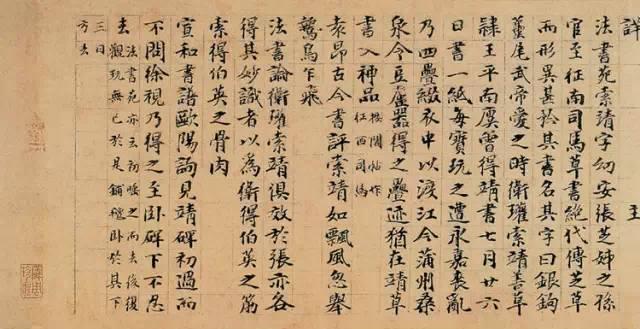 法書苑索靖字幼安張芝姊之孫
官至征南司馬草書絕代傳芝草
而形異甚矜其書名其字曰銀鉤
蠆尾武帝愛之時衛瓘索靖善草
隸王平南廙曾得靖書七月廿六
日書一紙每寶玩之遭永嘉喪亂
乃四疊綴衣中以渡江今蒲州桑
泉令豆盧器得之疊迹猶在靖草
書入神品
按閣帖作
征西司馬
袁昂古今書評索靖如飄風忽舉
鷙鳥乍飛
法書論衛瓘索靖俱效於張亦各
得其妙識者以為衛得伯英之筋
索得伯英之骨肉
宣和書譜歐陽詢見靖碑初過而
不問徐視乃得之至卧碑下不忍
去
法書苑亦云初唾之而去後復
觀玩無已於是鋪氈卧於其下
三日
方去